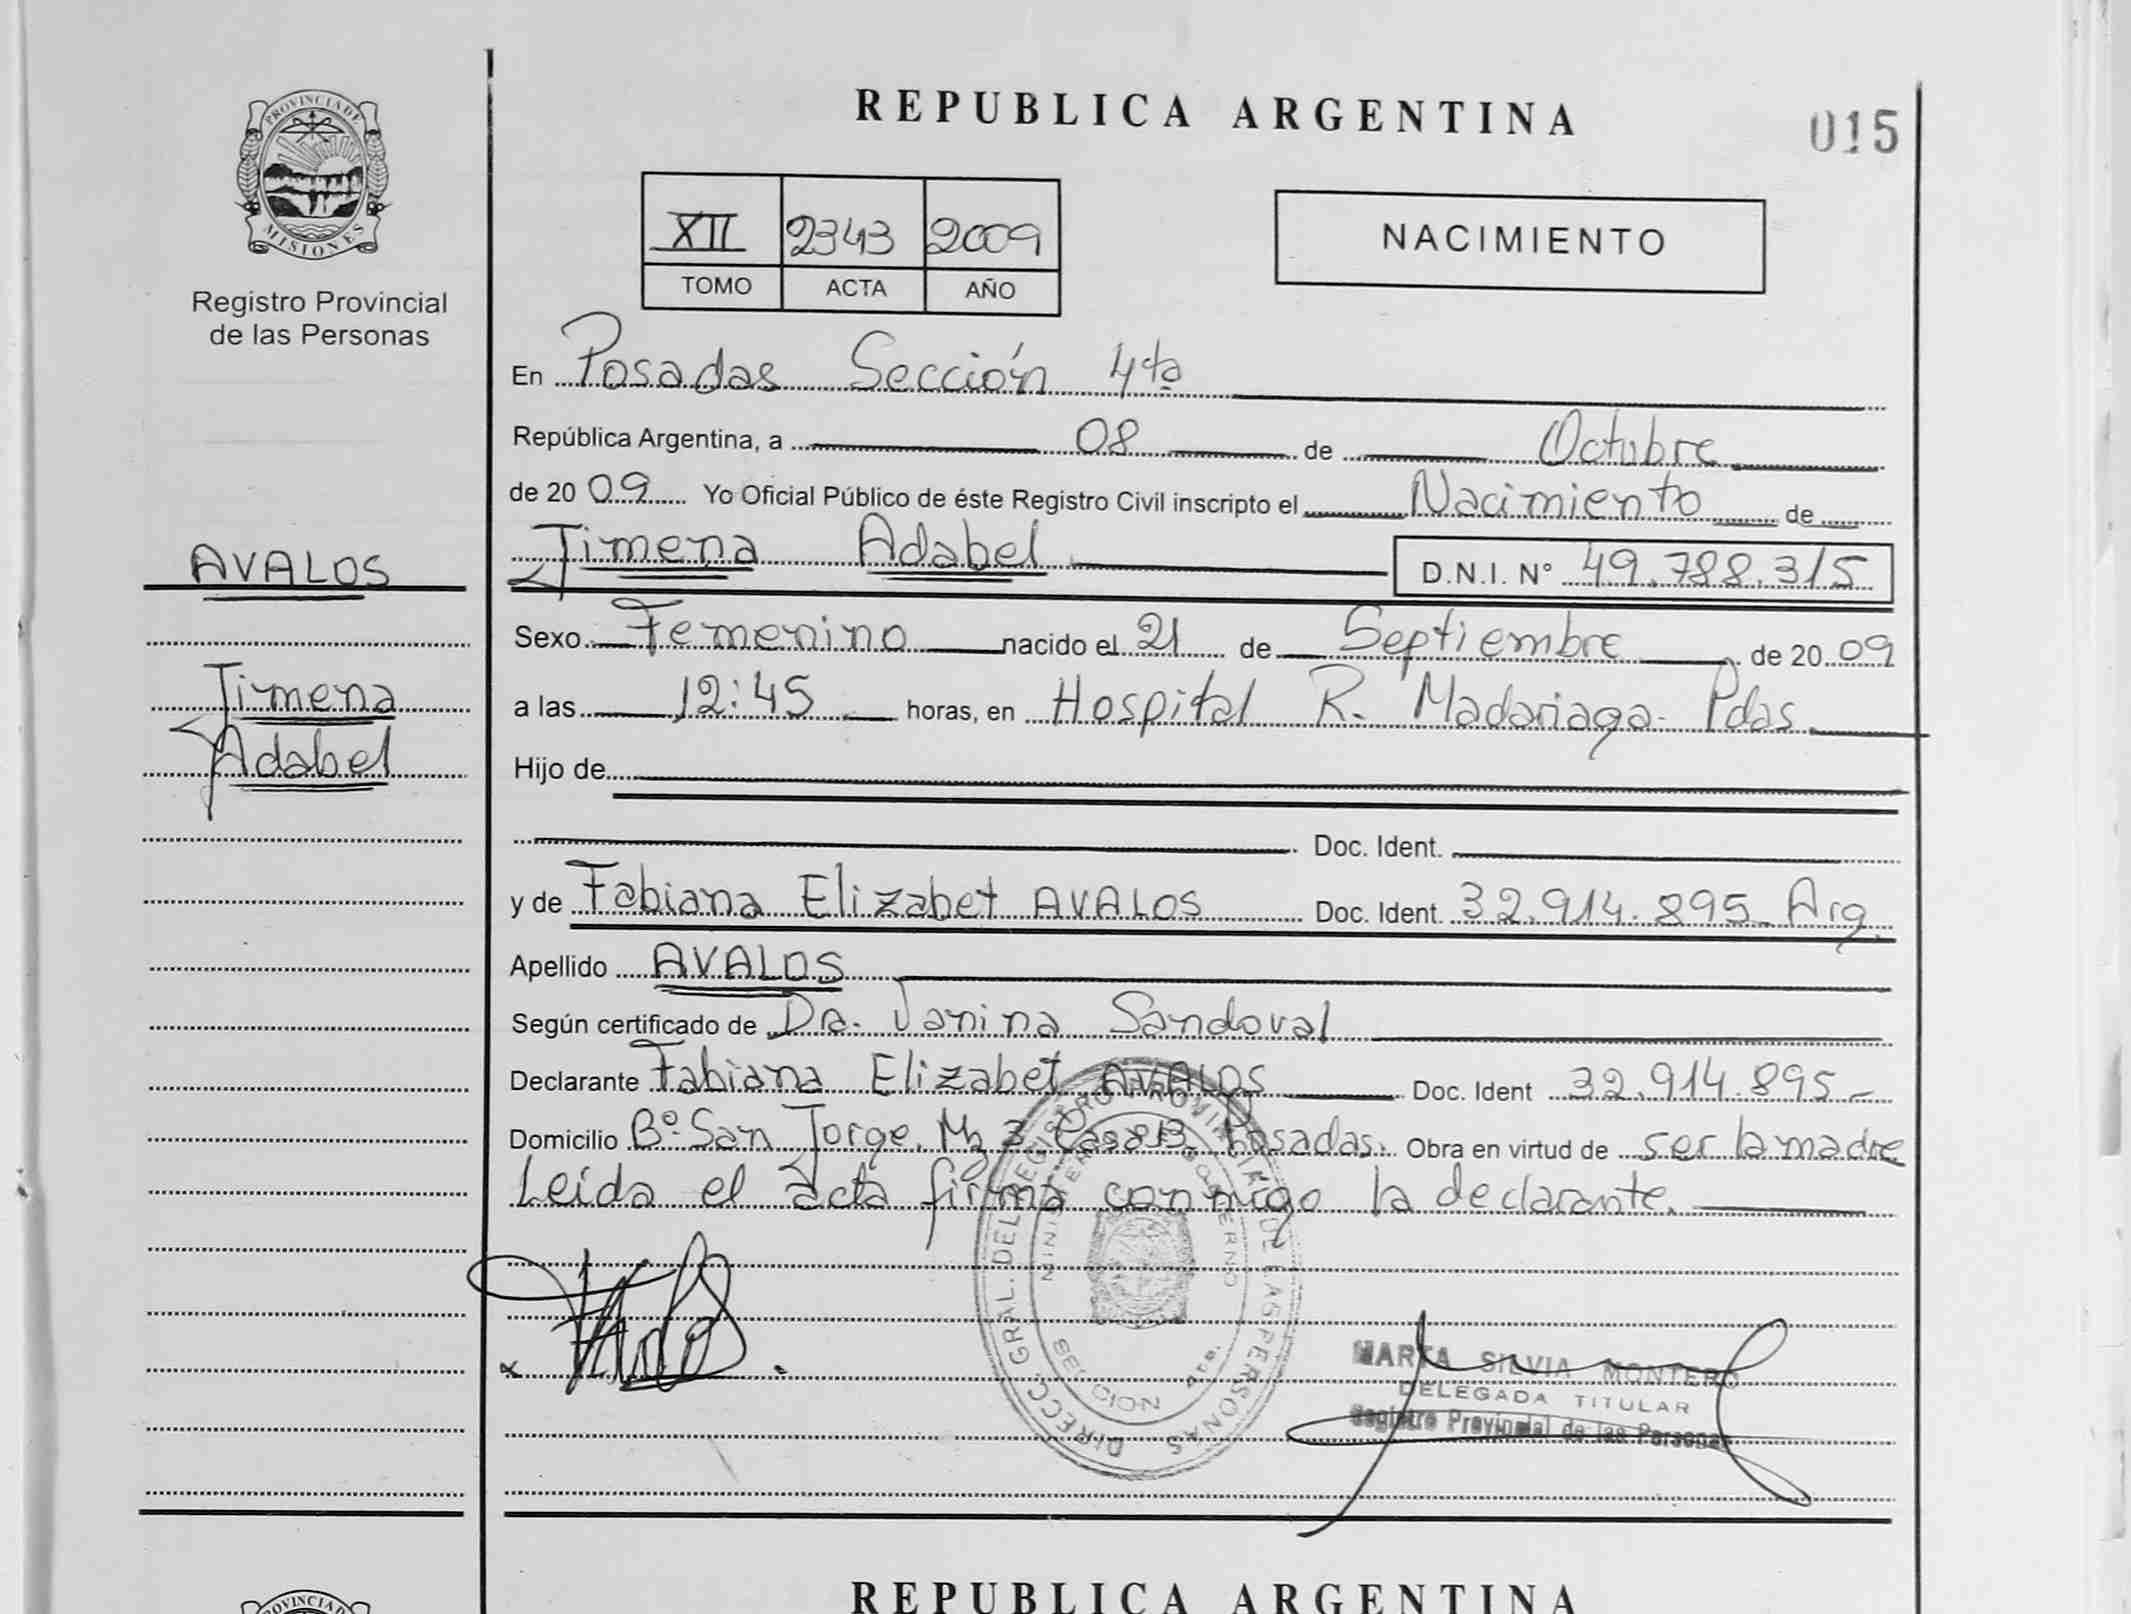 REPUBLICA ARGENTINA
015
PROVINCIA DE
MISIONES
Registro Provincial
de las Personas
XII 2343 2009
TOMO ACTA AÑO
NACIMIENTO
En Posadas Sección 4ta
República Argentina, a 08 de Octubre
de 20 09 Yo Oficial Público de éste Registro Civil inscripto el Nacimiento de
Jimena Adabel D.N.I. N° 49.788.315
AVALOS
Sexo Femenino nacido el 21 de Septiembre de 20 09
Jimena
Adabel
a las 12:45 horas, en Hospital R. Madariaga. Pdas
Hijo de
Doc. Ident.
y de Fabiana Elizabet AVALOS Doc. Ident. 32.914.895 Arg.
Apellido AVALOS
Según certificado de Dra. Janina Sandoval
Declarante Fabiana Elizabet AVALOS Doc. Ident 32.914.895
Domicilio B° San Jorge. Mz 3 Casa 13 Posadas. Obra en virtud de ser la madre
Leída el acta firma conmigo la declarante.
DIRECC. GRAL. DEL REGISTRO PROVINCIAL DE LAS PERSONAS
MINISTERIO GOBIERNO
MARTA SILVIA MONTERO
DELEGADA TITULAR
Registro Provincial de las Personas
PROVINCIA
REPUBLICA ARGENTINA